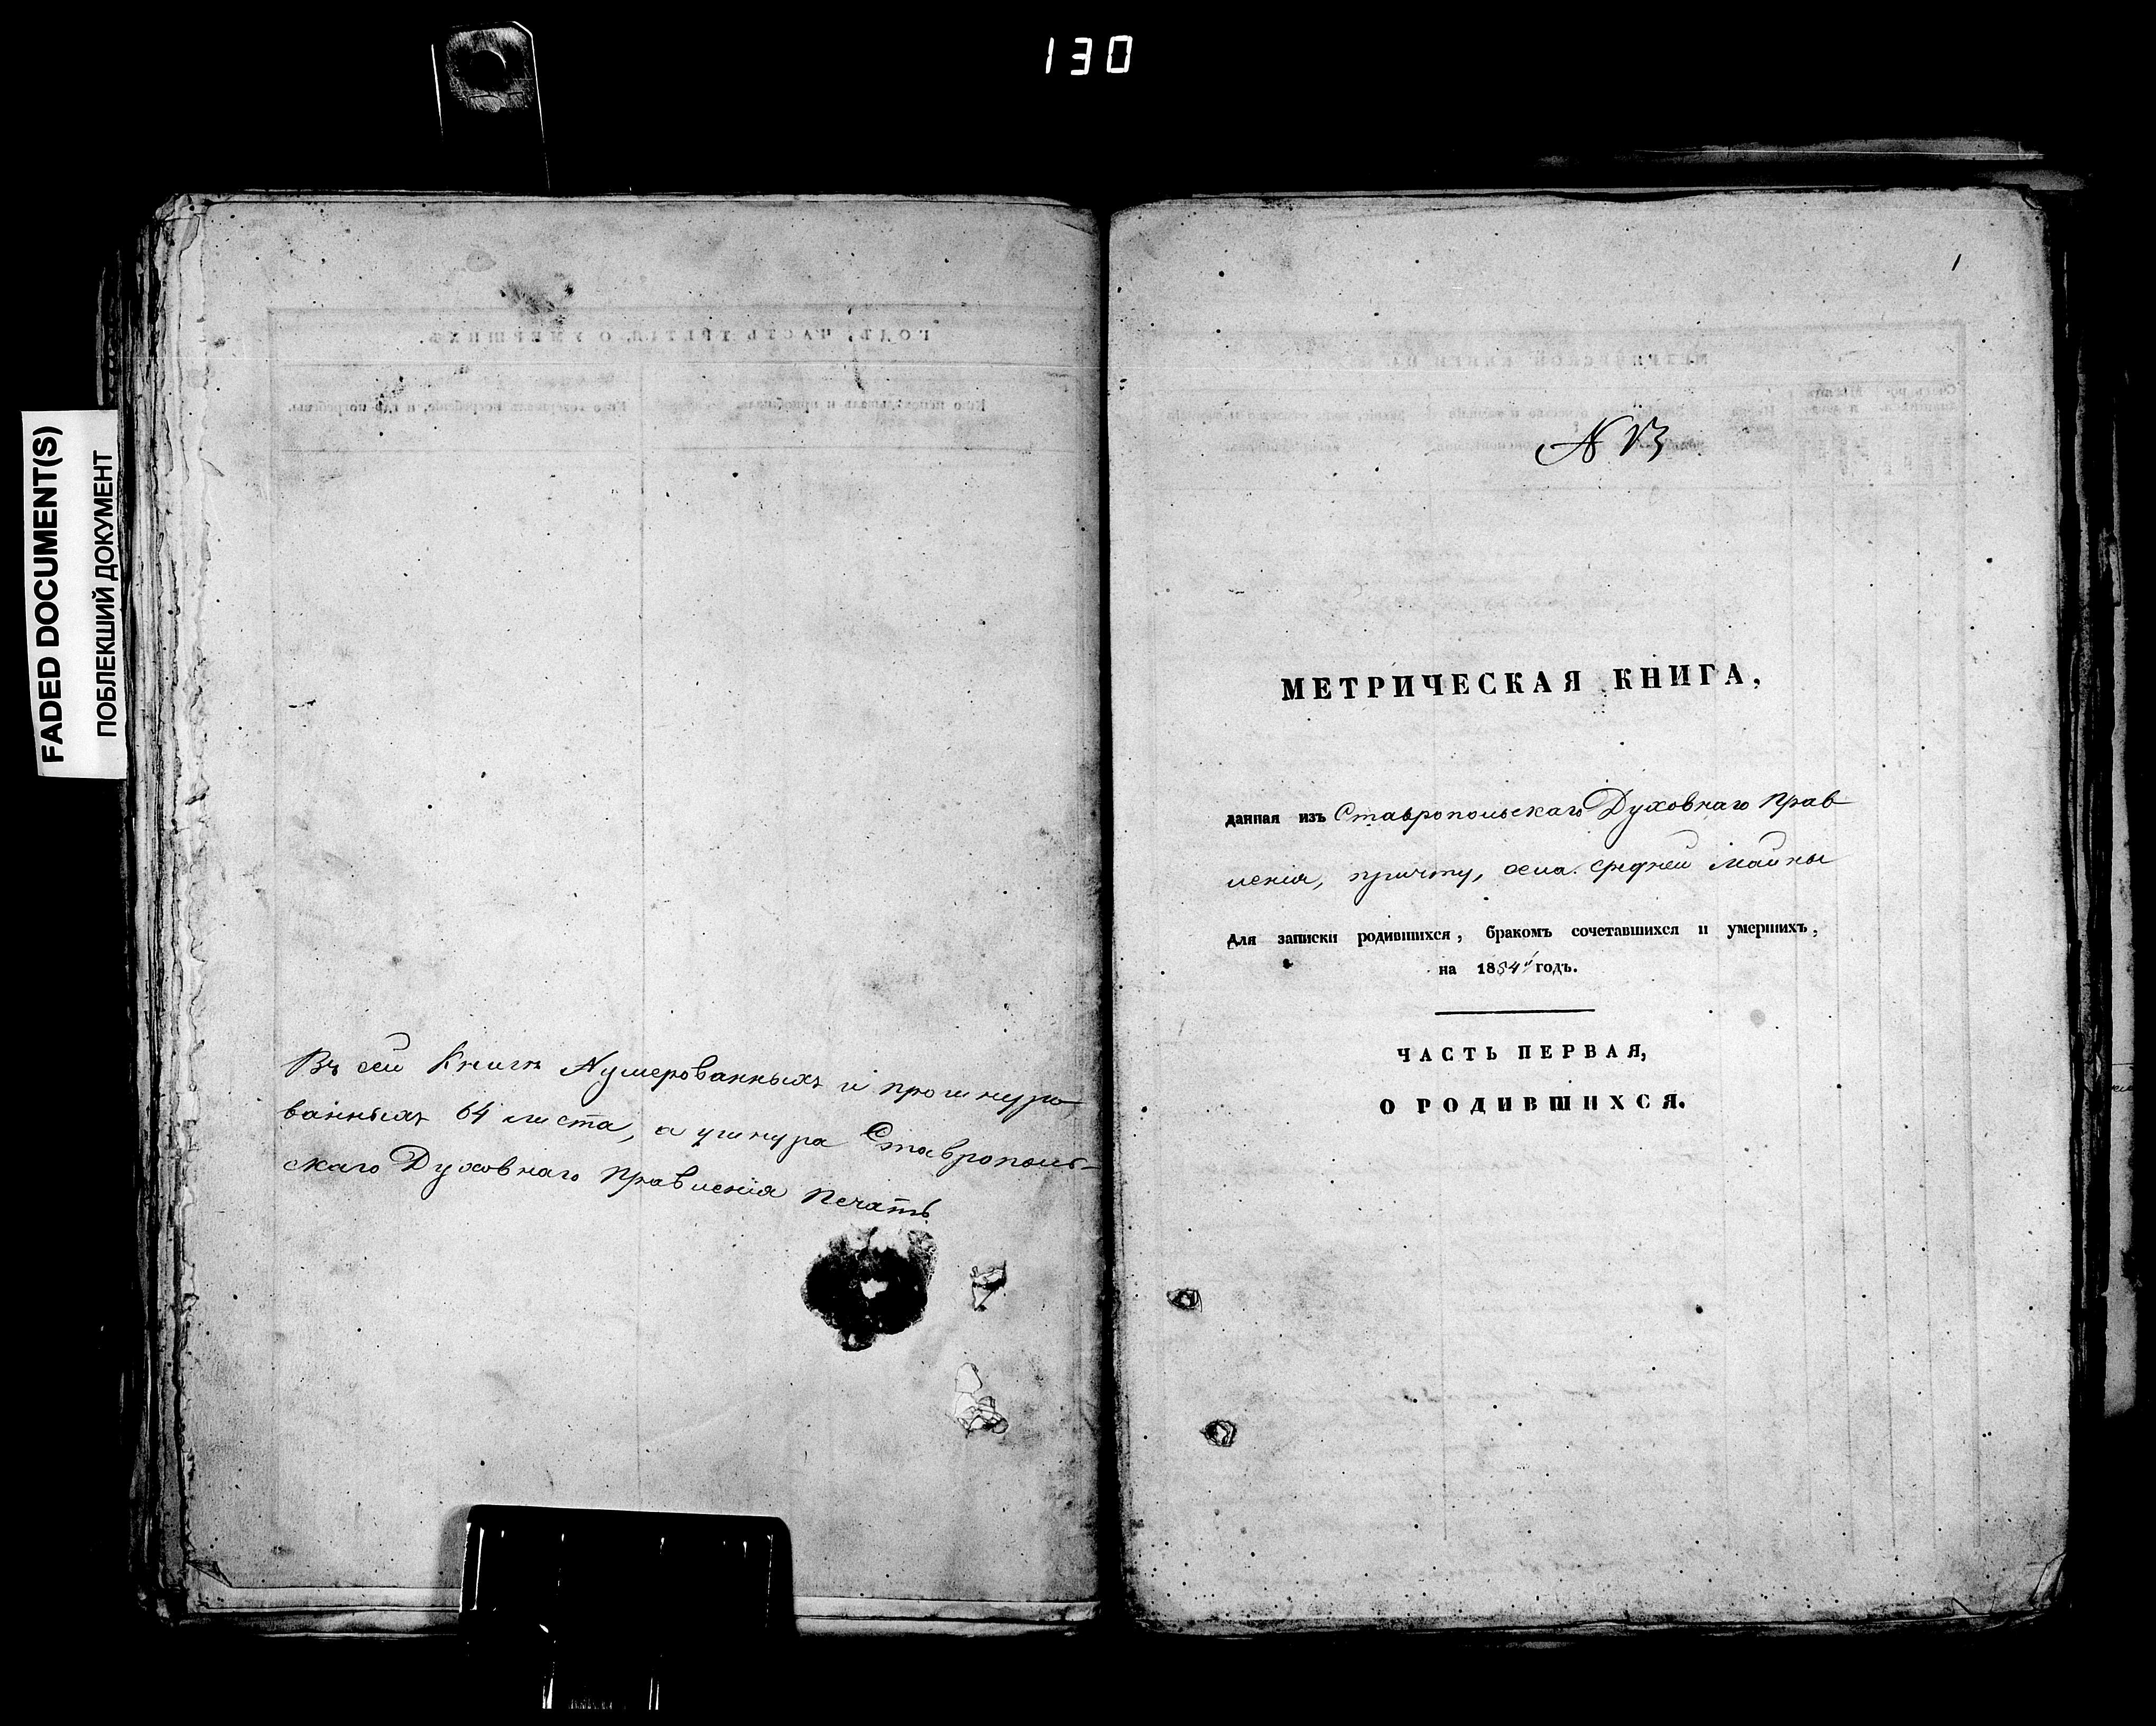 130
FADED DOCUMENT(S)
ПОБЛЕКШИЙ ДОКУМЕНТ
Въ сей Книгѣ Нумерованныхъ и прошнуро
ванныхъ 64 листа, а у шнура Ставрополь-
скаго Духовнаго Правленія печать
1
N 13
МЕТРИЧЕСКАЯ КНИГА,
данная изъ Ставропольскаго Духовнаго Прав
ленія, причту, села Средней Майны
для записки родившихся, бракомъ сочетавшихся и умершихъ,
на 1854й годъ.
ЧАСТЬ ПЕРВАЯ,
О РОДИВШИХСЯ.